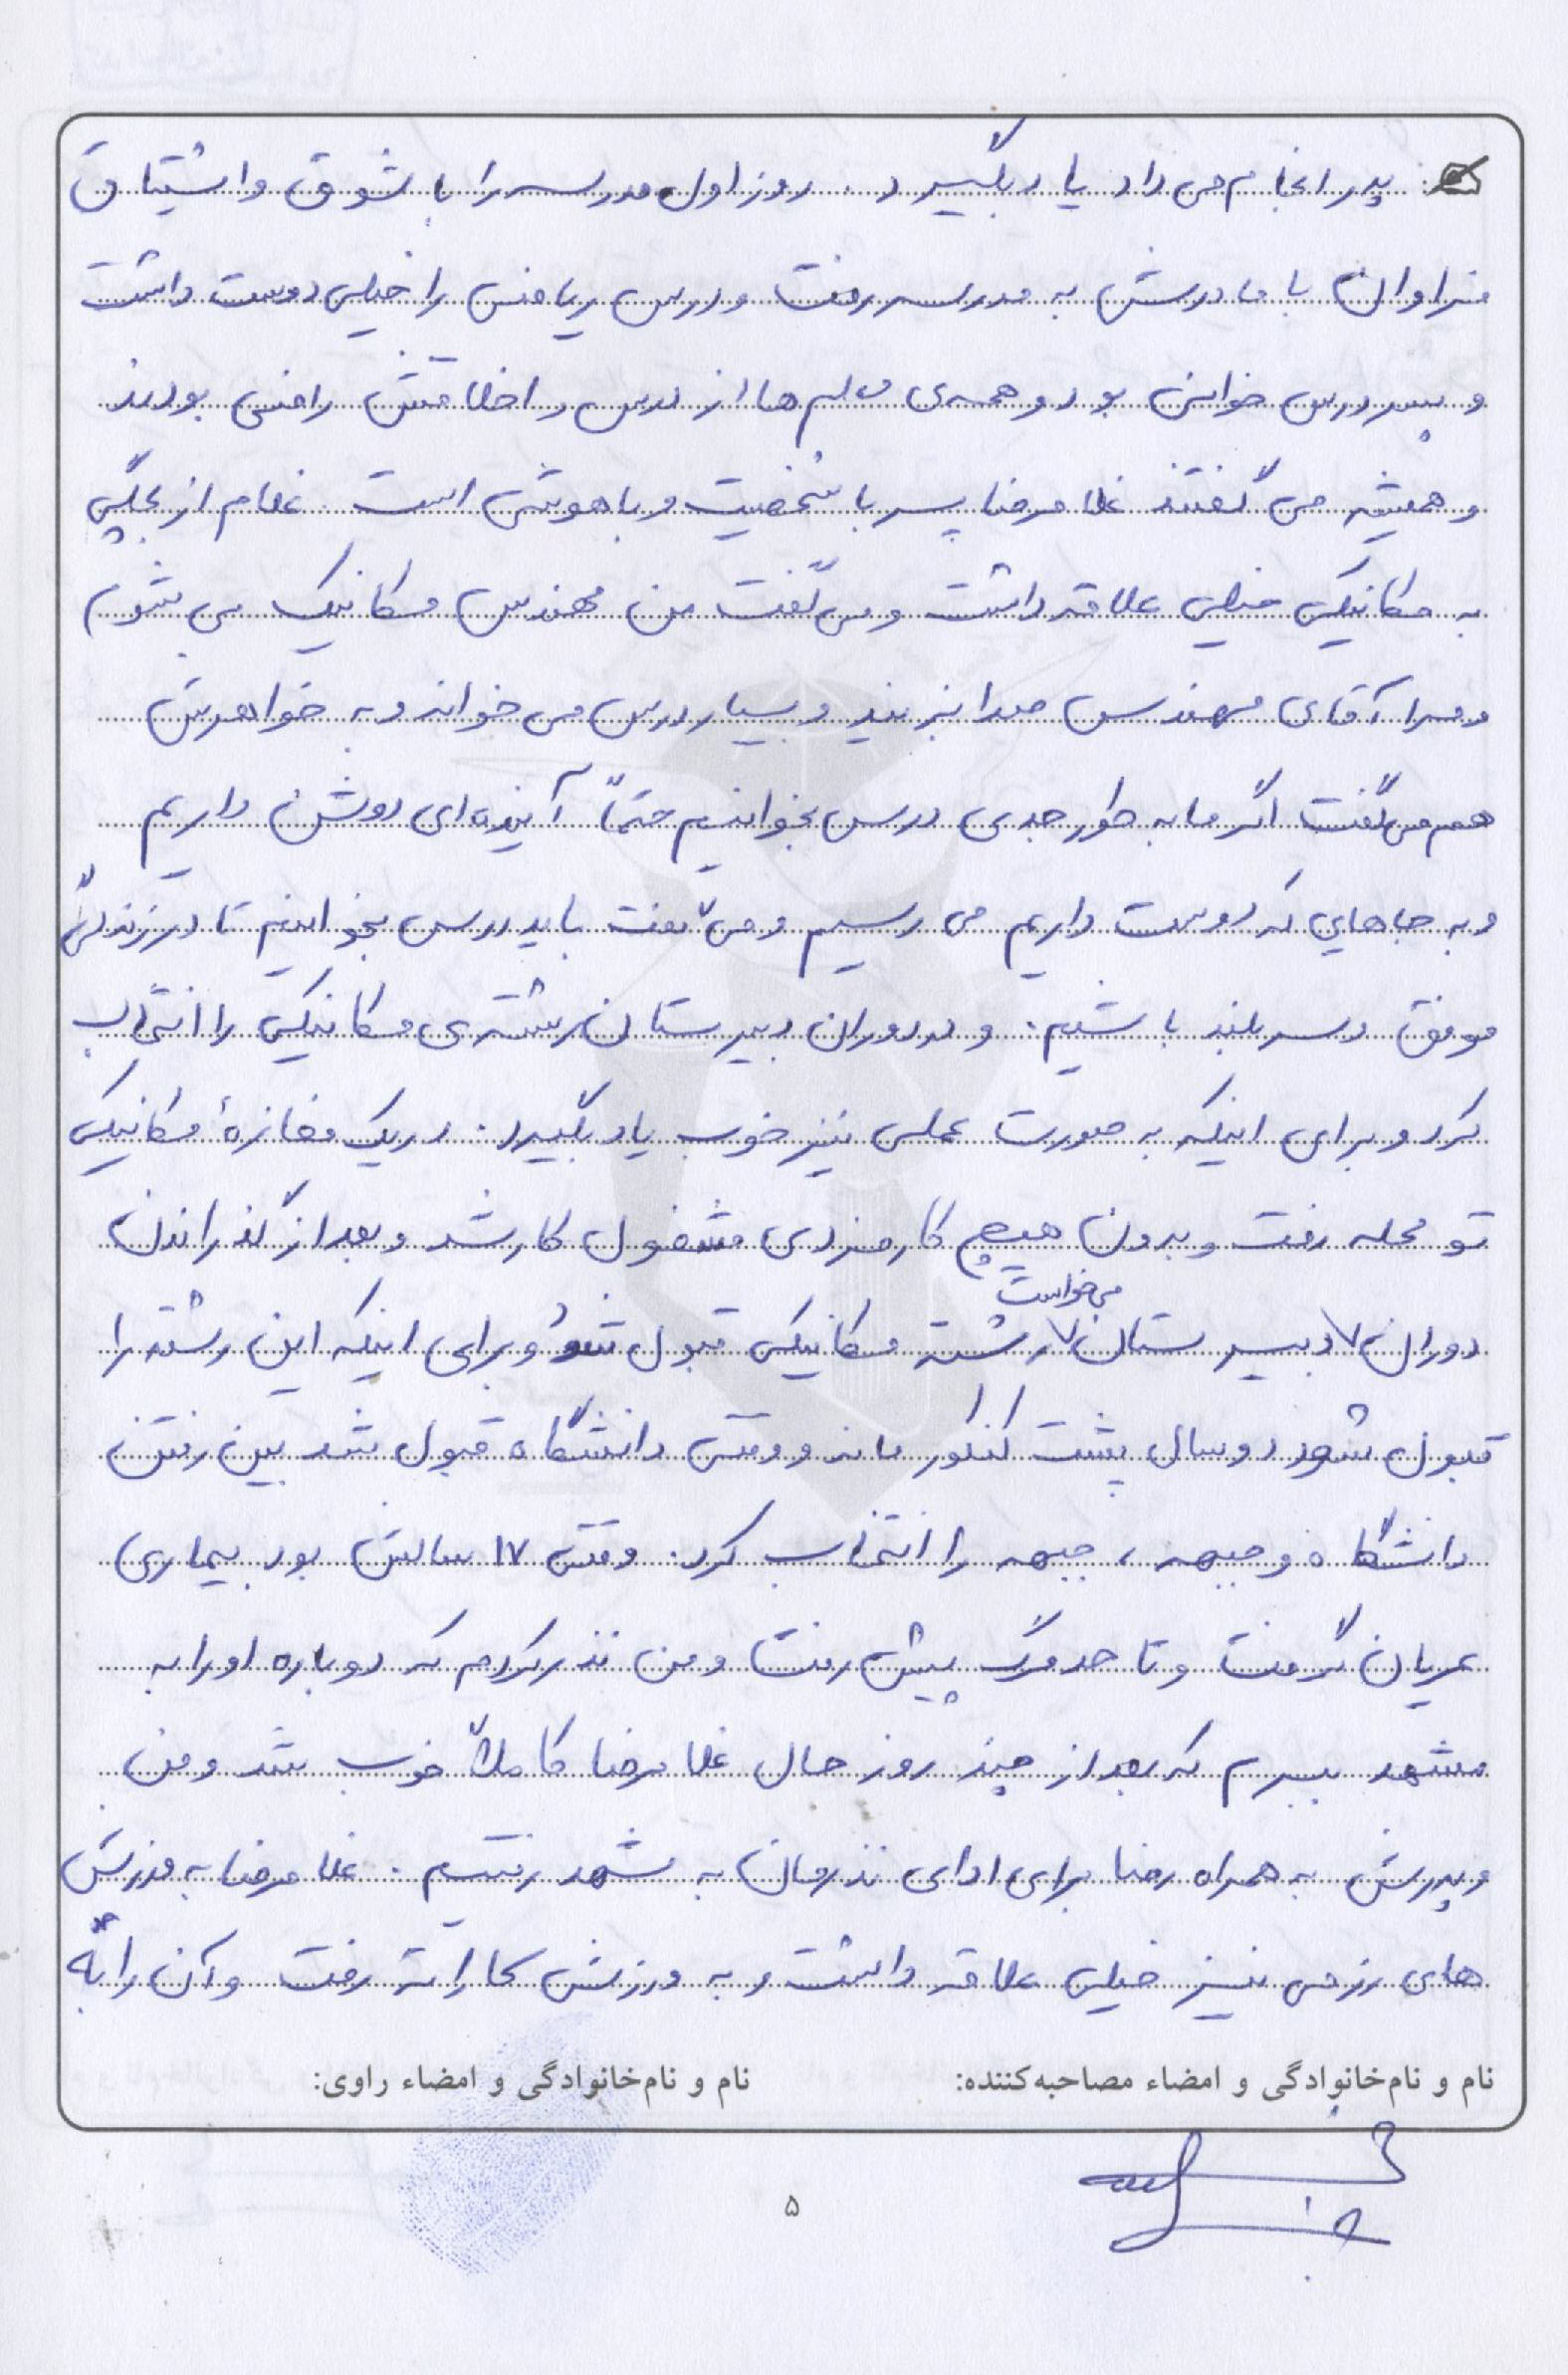 پدر انجام می داد یاد بگیرد. روز اول مدرسه را با شوق و اشتیاق
فراوان با مادرش به مدرسه رفت و درس ریاضی را خیلی دوست داشت
و پسر درس خوانی بود و همه‌ی معلم ها از درس و اخلاقش راضی بودند
و همیشه می گفتند غلامرضا پسر با شخصیت و باهوشی است. غلام از بچگی
به مکانیکی خیلی علاقه داشت و می گفت من مهندس مکانیک می شوم
و مرا آقای مهندس صدا بزنید و بسیار درس می خواند و به خواهرش
هم می گفت اگر ما به طور جدی درس بخوانیم حتماً آینده ای روشن داریم
و به جاهایی که دوست داریم می رسیم و می گفت باید درس بخوانیم تا در زندگی
موفق و سربلند باشیم. و در دوران دبیرستان رشته‌ی مکانیکی را انتخاب
کرد و برای اینکه به صورت عملی نیز خوب یاد بگیرد. در یک مغازهٔ مکانیکی
تو محله رفت و بدون هیچ کارمزدی مشغول کار شد و بعد از گذراندن
دوران دبیرستان می خواست رشته مکانیکی قبول شود و برای اینکه این رشته را
قبول شود دو سال پشت کنکور ماند و وقتی دانشگاه قبول شد بین رفتن
دانشگاه و جبهه، جبهه را انتخاب کرد. وقتی ۱۷ سالش بود بیماری
عریان گرفت و تا حد مرگ پیش رفت و من نذر کردم که دوباره او را به
مشهد ببرم که بعد از چند روز حال غلامرضا کاملاً خوب شد و من
و پدرش به همراه رضا برای ادای نذرمان به مشهد رفتیم. غلامرضا به ورزش
های رزمی نیز خیلی علاقه داشت و به ورزش کاراته رفت و آن را به
نام و نام‌خانوادگی و امضاء مصاحبه‌کننده: نام و نام‌خانوادگی و امضاء راوی:
۵